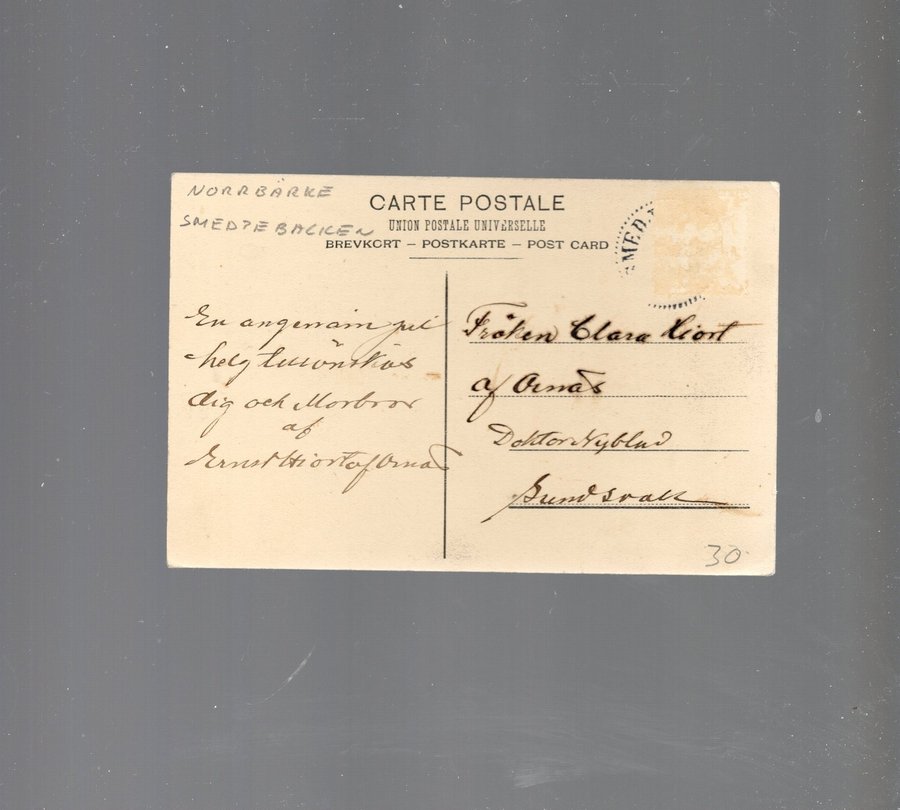 NORRBÄRKE
SMEDJEBACKEN
CARTE POSTALE
UNION POSTALE UNIVERSELLE
BREVKORT – POSTKARTE – POST CARD
SMEDJ
En angenäm jul
helg tillönskas
dig och Morbror
af
Ernst Hiort af Ornäs
Fröken Clara Hiort
af Ornäs
Doktor Nyblad
Sundsvall
30